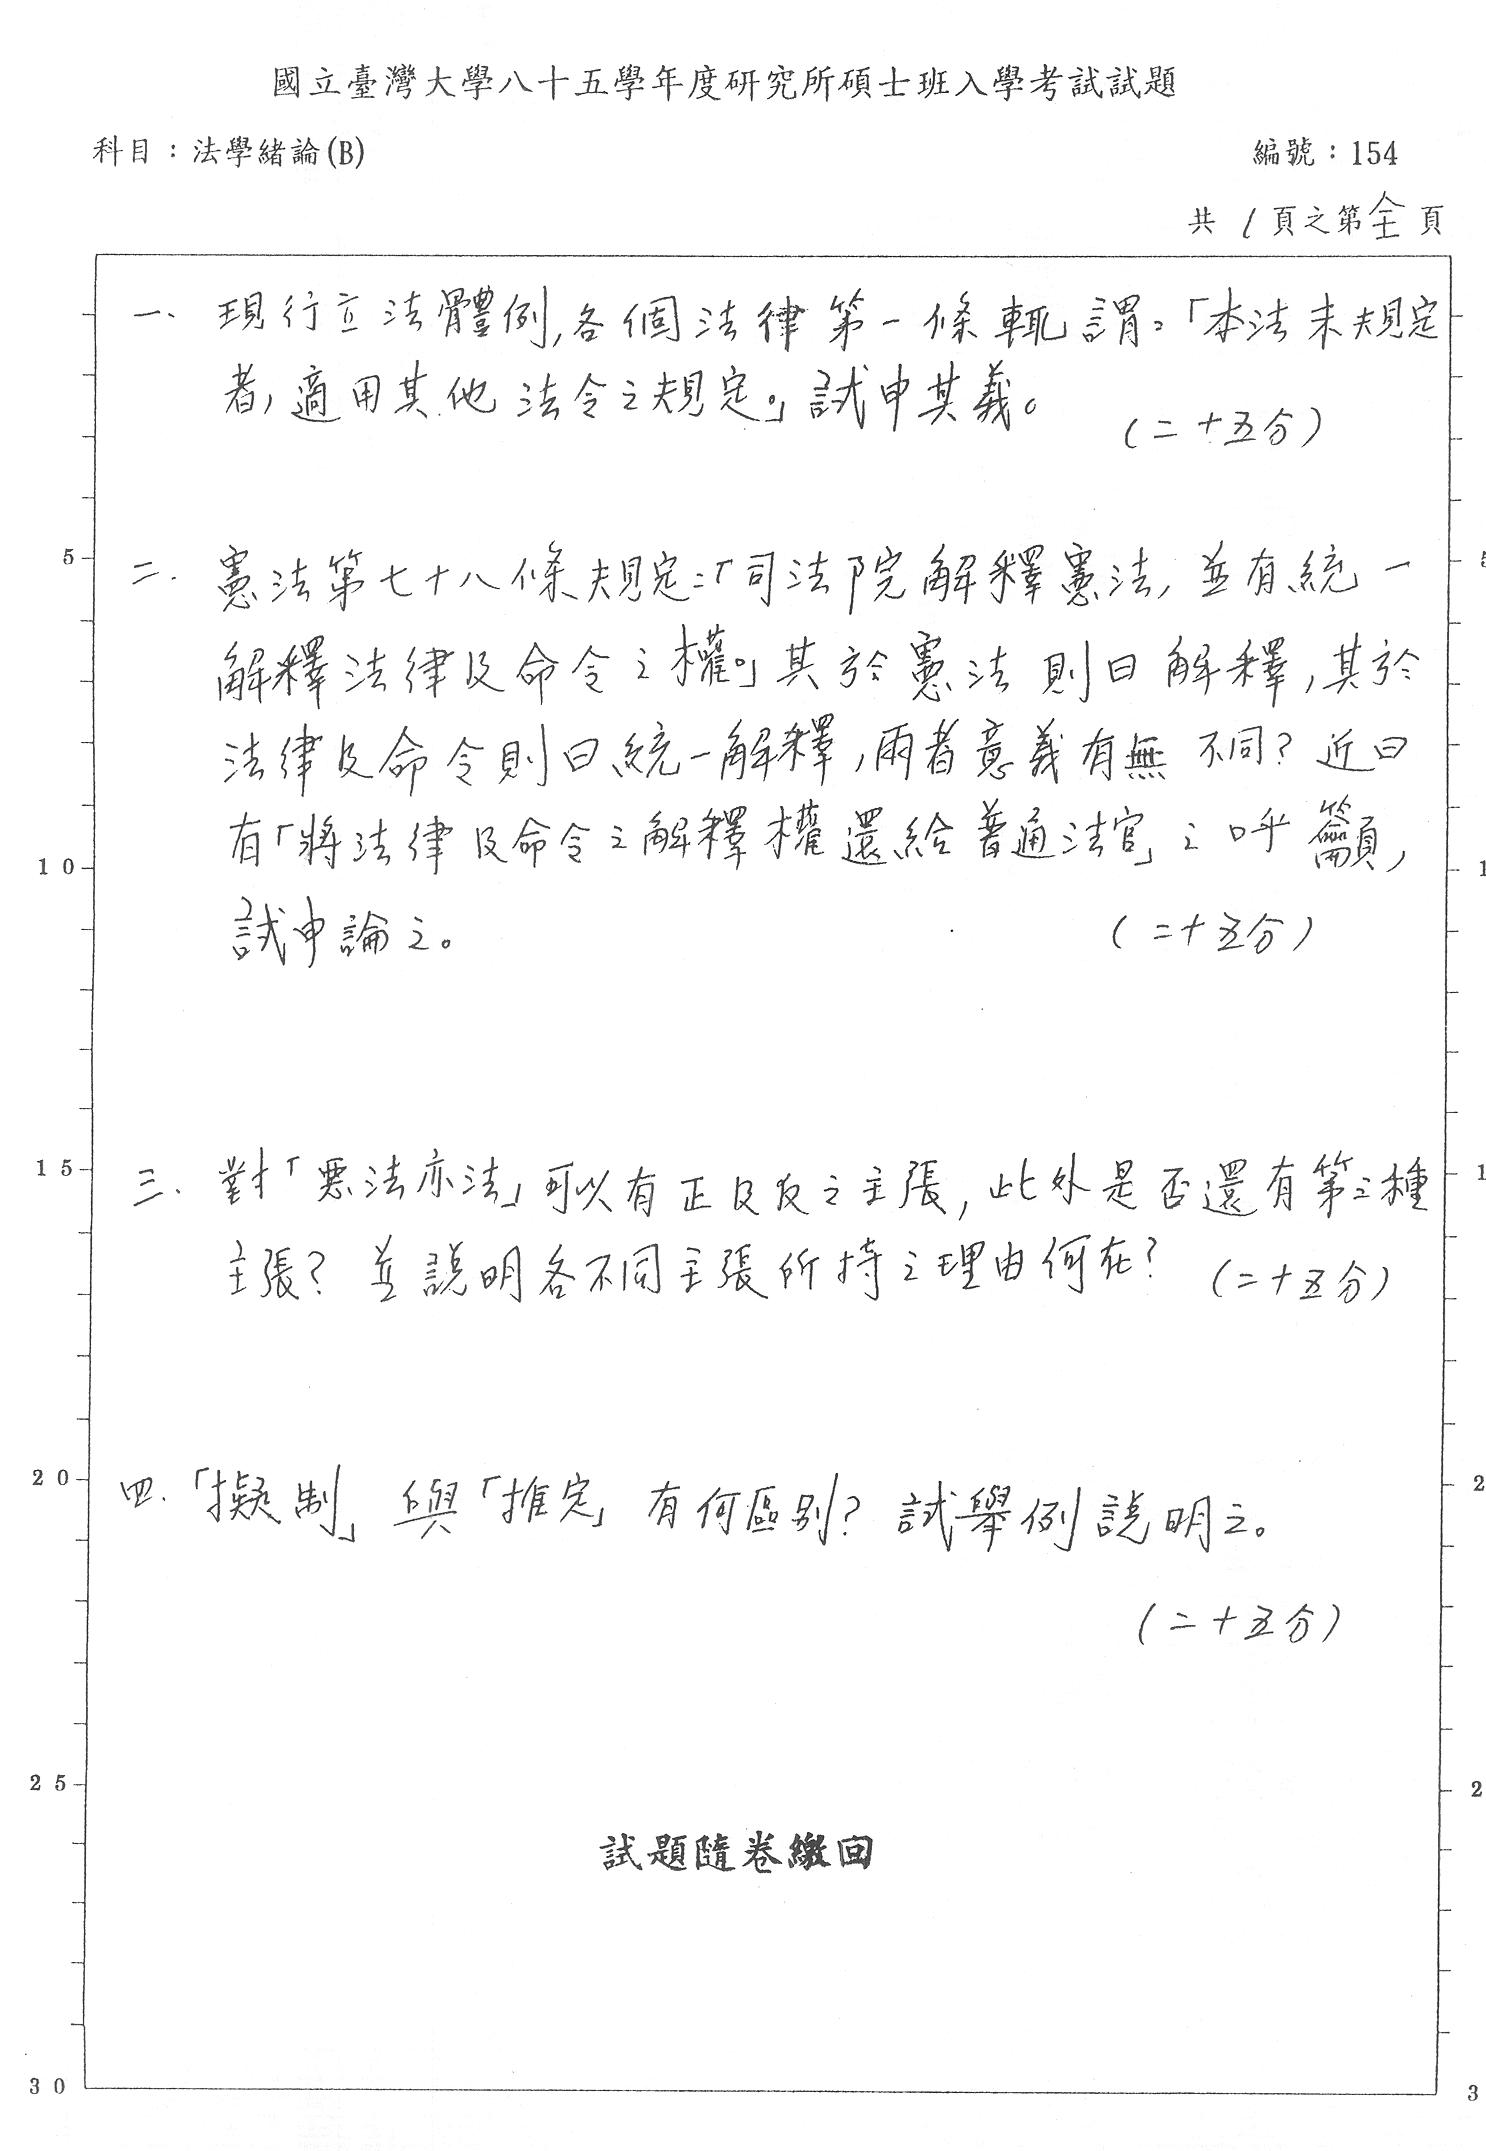 國立臺灣大學八十五學年度研究所碩士班入學考試試題
科目：法學緒論(B)
編號：154
共1頁之第全頁
一、現行立法體例，各個法律第一條輒謂：「本法未規定
者，適用其他法令之規定。」試申其義。
（二十五分）
5
二、憲法第七十八條規定：「司法院解釋憲法，並有統一
解釋法律及命令之權。」其於憲法則曰解釋，其於
法律及命令則曰統一解釋，兩者意義有無不同？近日
有「將法律及命令之解釋權還給普通法官」之呼籲，
10
試申論之。
（二十五分）
15
三、對「惡法亦法」可以有正及反之主張，此外是否還有第三種
主張？並說明各不同主張所持之理由何在？（二十五分）
20
四、「擬制」與「推定」有何區別？試舉例說明之。
（二十五分）
25
試題隨卷繳回
30